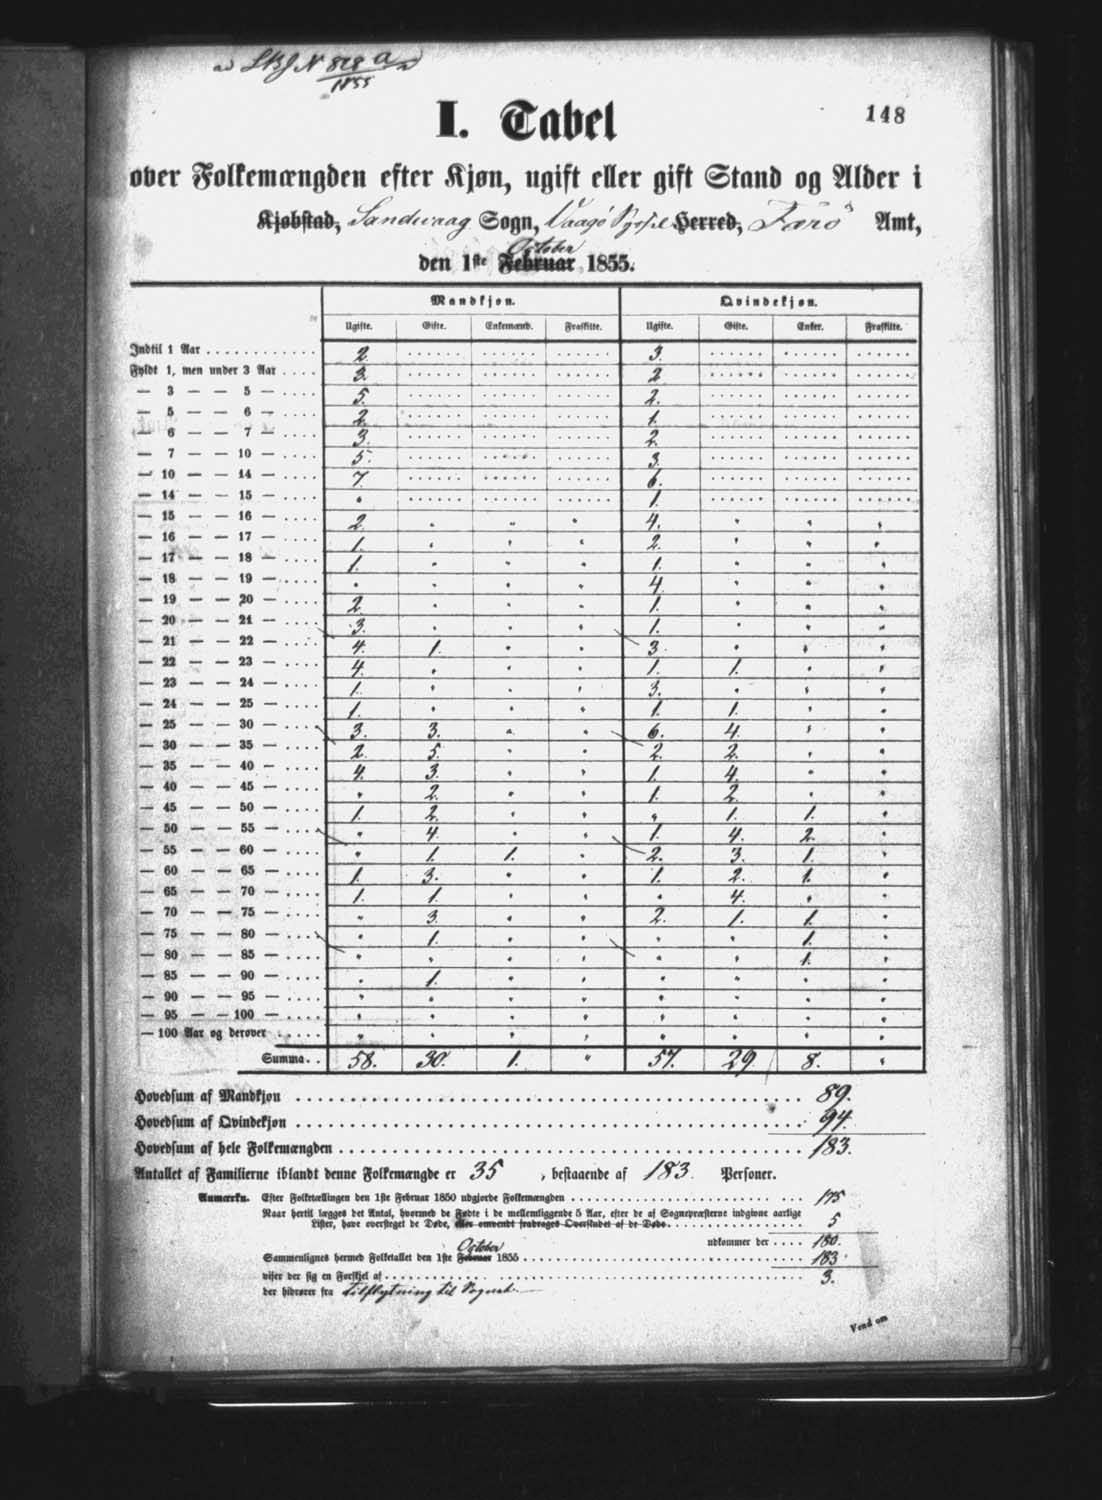 ad LBJ N 828 a
1855
148
I. Tabel
over Folkemængden efter Kjøn, ugift eller gift Stand og Alder i
Kjøbstad, Sandevaag Sogn, Vaagø Syssel Herred, Færø Amt,
October
den 1ste Februar 1855.
Mandkjøn. Qvindekjøn.
Ugifte. Gifte. Enkemænd. Fraskilte. Ugifte. Gifte. Enker. Fraskilte.
Indtil 1 Aar 2. 3.
Fyldt 1, men under 3 Aar 3. 2
— 3 — — 5 — 5. 2.
— 5 — — 6 — 2. 1.
— 6 — — 7 — 3. 2.
— 7 — — 10 — 5. 3.
— 10 — — 14 — 7. 6.
— 14 — — 15 — " 1.
— 15 — — 16 — 2. " " " 4. " " "
— 16 — — 17 — 1. " " " 2. " " "
— 17 — — 18 — 1. " " " 1. " " "
— 18 — — 19 — " " " " 4. " " "
— 19 — — 20 — 2. " " " 1. " " "
— 20 — — 21 — 3. " " " 1. " " "
— 21 — — 22 — 4. 1. " " 3. " " "
— 22 — — 23 — 4. " " " 1. 1. " "
— 23 — — 24 — 1. " " " 3. " " "
— 24 — — 25 — 1. " " " 1. 1. " "
— 25 — — 30 — 3. 3. " " 6. 4. " "
— 30 — — 35 — 2. 5. " " 2. 2. " "
— 35 — — 40 — 4. 3. " " 1. 4. " "
— 40 — — 45 — " 2. " " 1. 2. " "
— 45 — — 50 — 1. 2. " " " 1. 1. "
— 50 — — 55 — " 4. " " 1. 4. 2. "
— 55 — — 60 — " 1. 1. " 2. 3. 1. "
— 60 — — 65 — 1. 3. " " 1. 2. 1. "
— 65 — — 70 — 1. 1. " " " 4. " "
— 70 — — 75 — " 3. " " 2. 1. 1. "
— 75 — — 80 — " 1. " " " " 1. "
— 80 — — 85 — " " " " " " 1. "
— 85 — — 90 — " 1. " " " " " "
— 90 — — 95 — " " " " " " " "
— 95 — — 100 — " " " " " " " "
— 100 Aar og derover " " " " " " " "
Summa 58. 30. 1. " 57. 29. 8. "
Hovedsum af Mandkjøn 89.
Hovedsum af Qvindekjøn 94.
Hovedsum af hele Folkemængden 183.
Antallet af Familierne iblandt denne Folkemængde er 35, bestaaende af 183 Personer.
Anmærkn. Efter Folketællingen den 1ste Februar 1850 udgjorde Folkemængden 175
Naar hertil lægges det Antal, hvormed de Fødte i de mellemliggende 5 Aar, efter de af Sognepræsterne indgivne aarlige
Lister, have oversteget de Døde, eller omvendt fradrages Overskudet af de Døde 5
udkommer der 180.
October
Sammenlignes hermed Folketallet den 1ste Februar 1855 183
viser der sig en Forskjel af 3.
der hidrører fra tilflytning til Sognet.
Vend om